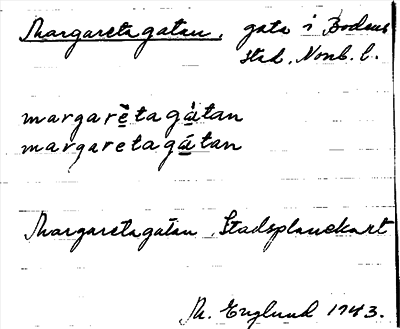 Margaretagatan, gata i Bodens
stad, Norrb. l.
margarètagàtan
margaretagátan
Margaretagatan, Stadsplanekart
M. Englund 1943.